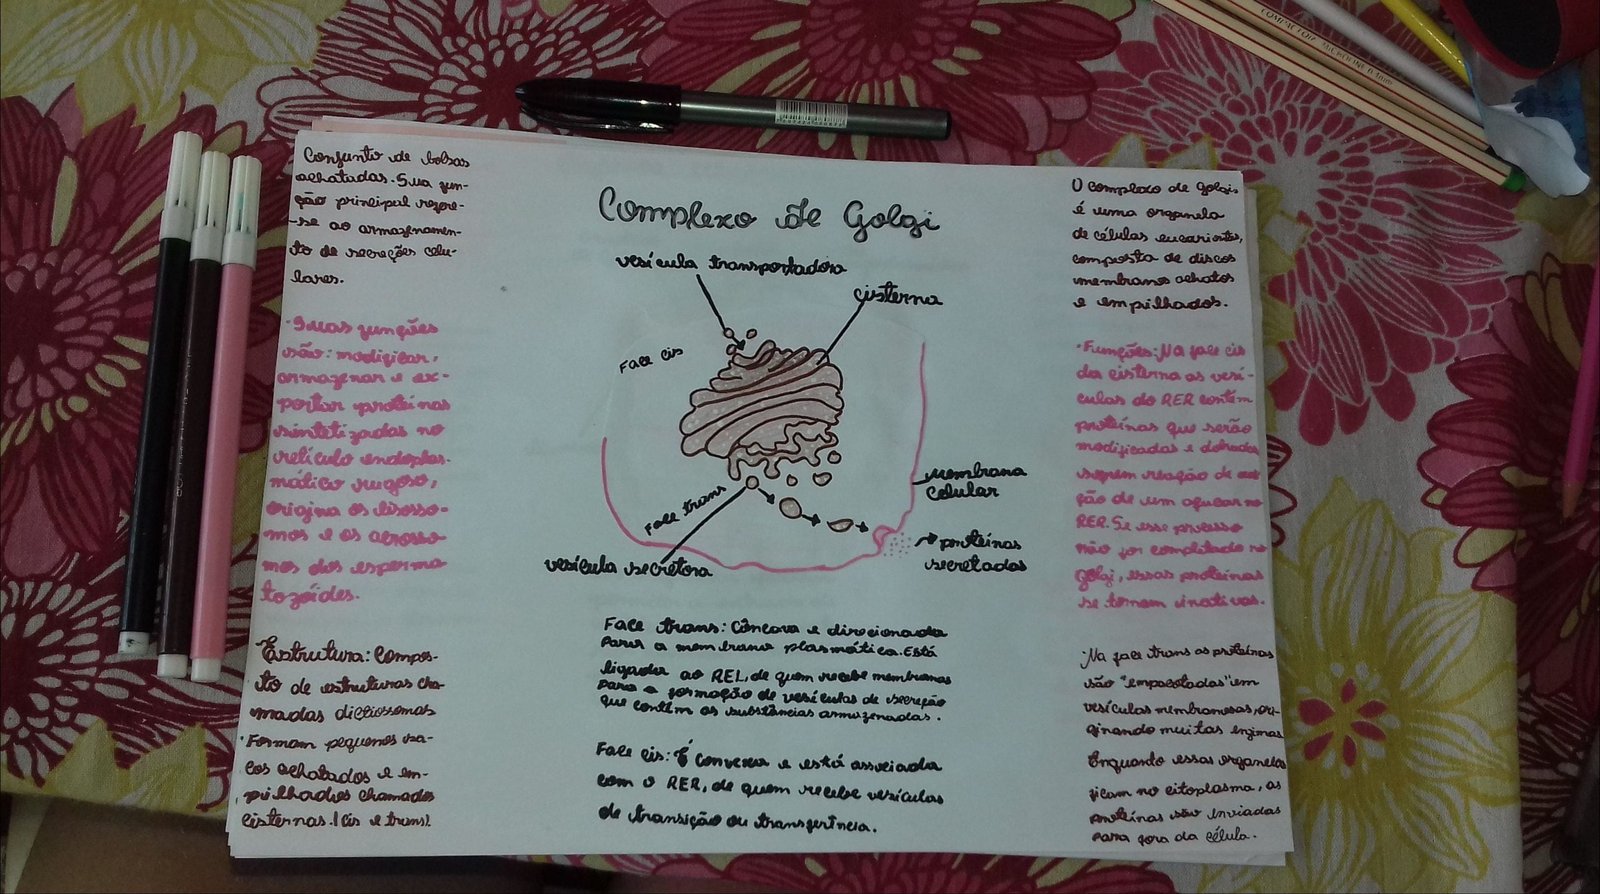 Complexo de Golgi
Conjunto de bolsas
achatadas. Sua fun-
ção principal refere-
-se ao armazenamen-
to de secreções celu-
lares.
· Suas funções
são: modificar,
armazenar e ex-
portar proteínas
sintetizadas no
retículo endoplas-
mático rugoso,
origina os lisosso-
mos e os acrosso-
mos dos esperma
tozoides.
Estrutura: Compos-
to de estruturas cha-
madas dictiossomas
· Formam pequenos sa-
cos achatados e em-
pilhados chamados
cisternas. (cis e trans).
vesícula transportadora
cisterna
Face cis
Face trans
membrana
celular
vesícula secretora
proteínas
secretadas
Face trans: Côncava e direcionada
para a membrana plasmática. Está
ligada ao REL, de quem recebe membranas
para a formação de vesículas de secreção
que contêm as substâncias armazenadas.
Face cis: É convexa e está associada
com o RER, de quem recebe vesículas
de transição ou transferência.
O complexo de golgi,
é uma organela
de células eucariontes,
composta de discos
membranos achatos
e empilhados.
· Funções: Na face cis
da cisterna as vesí-
culas do RER contém
proteínas que serão
modificadas e dobradas
reação de
ção de um açucar no
RER. Se esse processo
não for completado no
golgi, essas proteínas
se tornam inativas.
· Na face trans as proteínas
são "empacotadas" em
vesículas membranosas, ori-
ginando muitas enzimas
Enquanto essas organelas
ficam no citoplasma, as
proteínas são enviadas
para fora da célula.
COMPACTOR MICROLINE 0.4mm